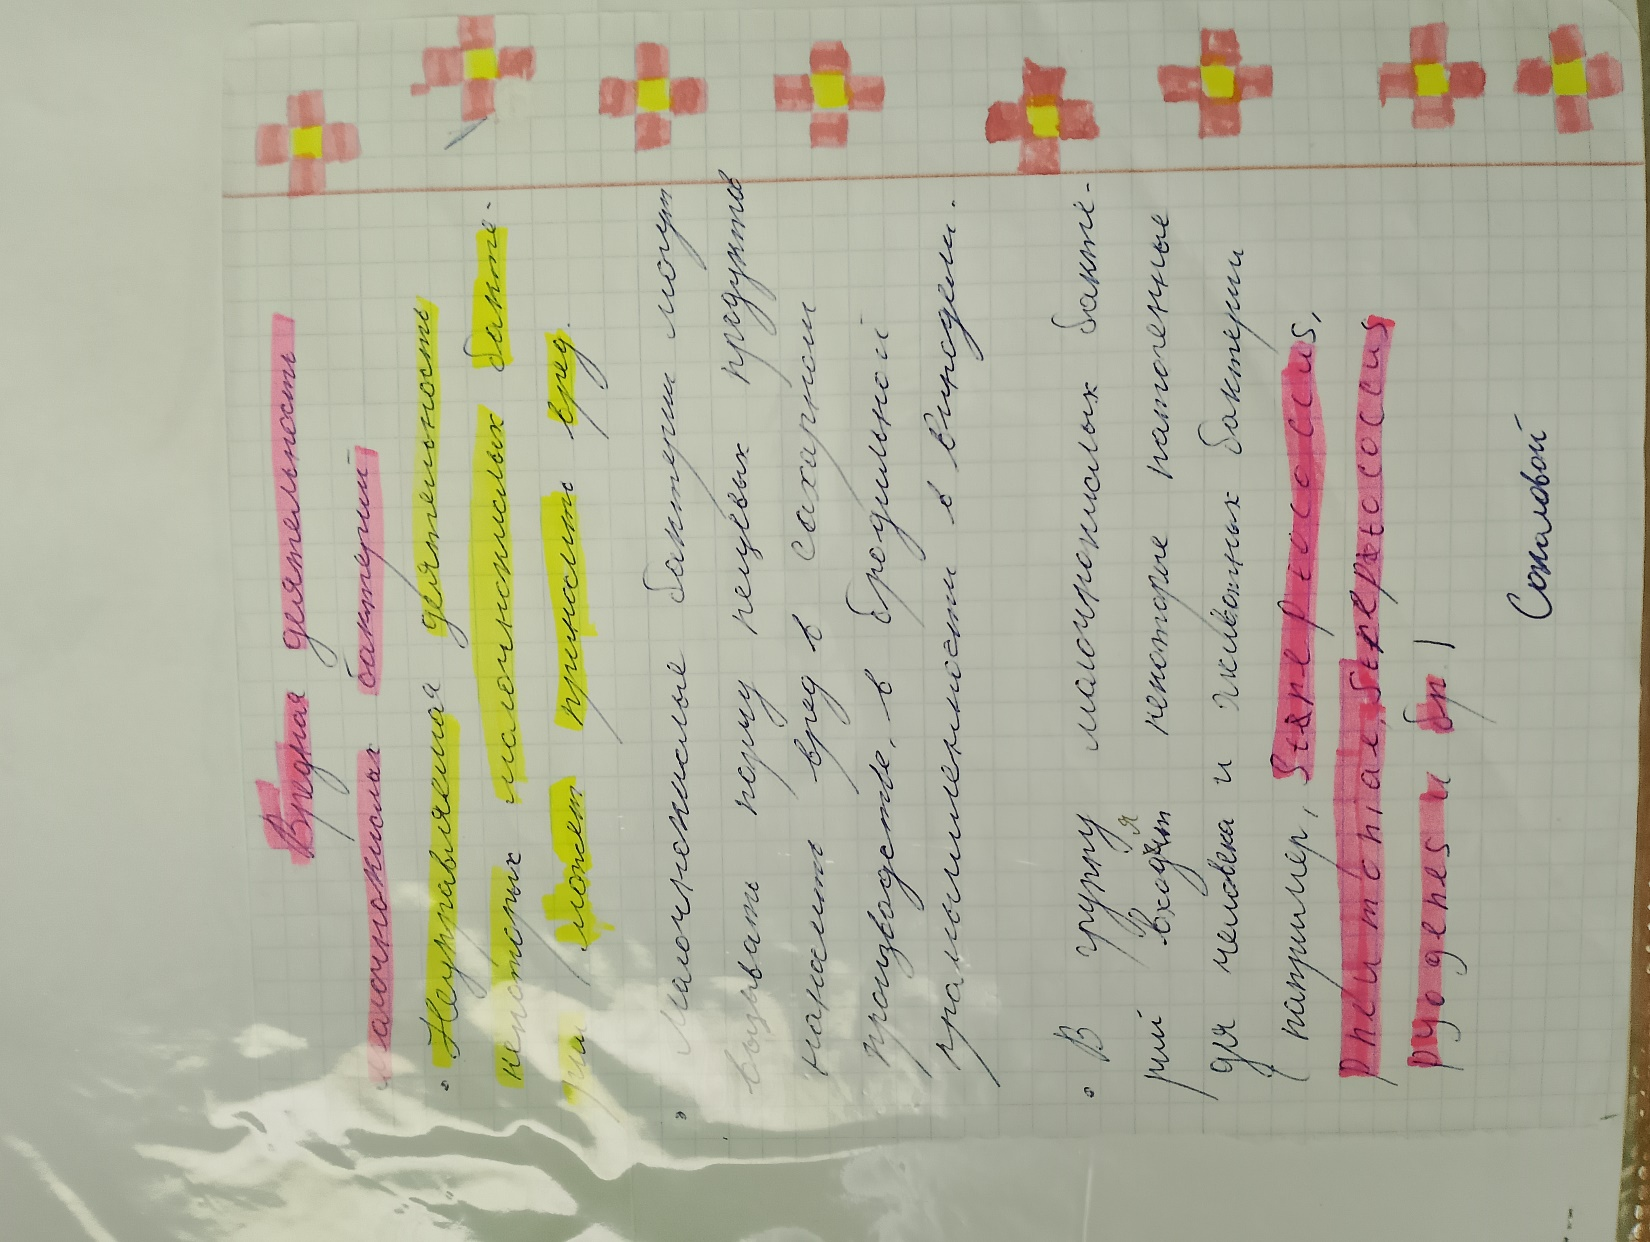 Вредная деятельность
молочнокислых бактерий
• Неуправляемая деятельность
некоторых молочнокислых бакте-
рий может приносить вред.
• Молочнокислые бактерии могут
вызывать порчу пищевых продуктов
наносить вред в сахарном
производстве, в бродильной
промышленности в виноделии.
• В группу молочнокислых бакте-
рий входят некоторые патогенные
для человека и животных бактерии
(например, Streptococcus,
pneumoniae, Streptococcus
pyogenes и др)